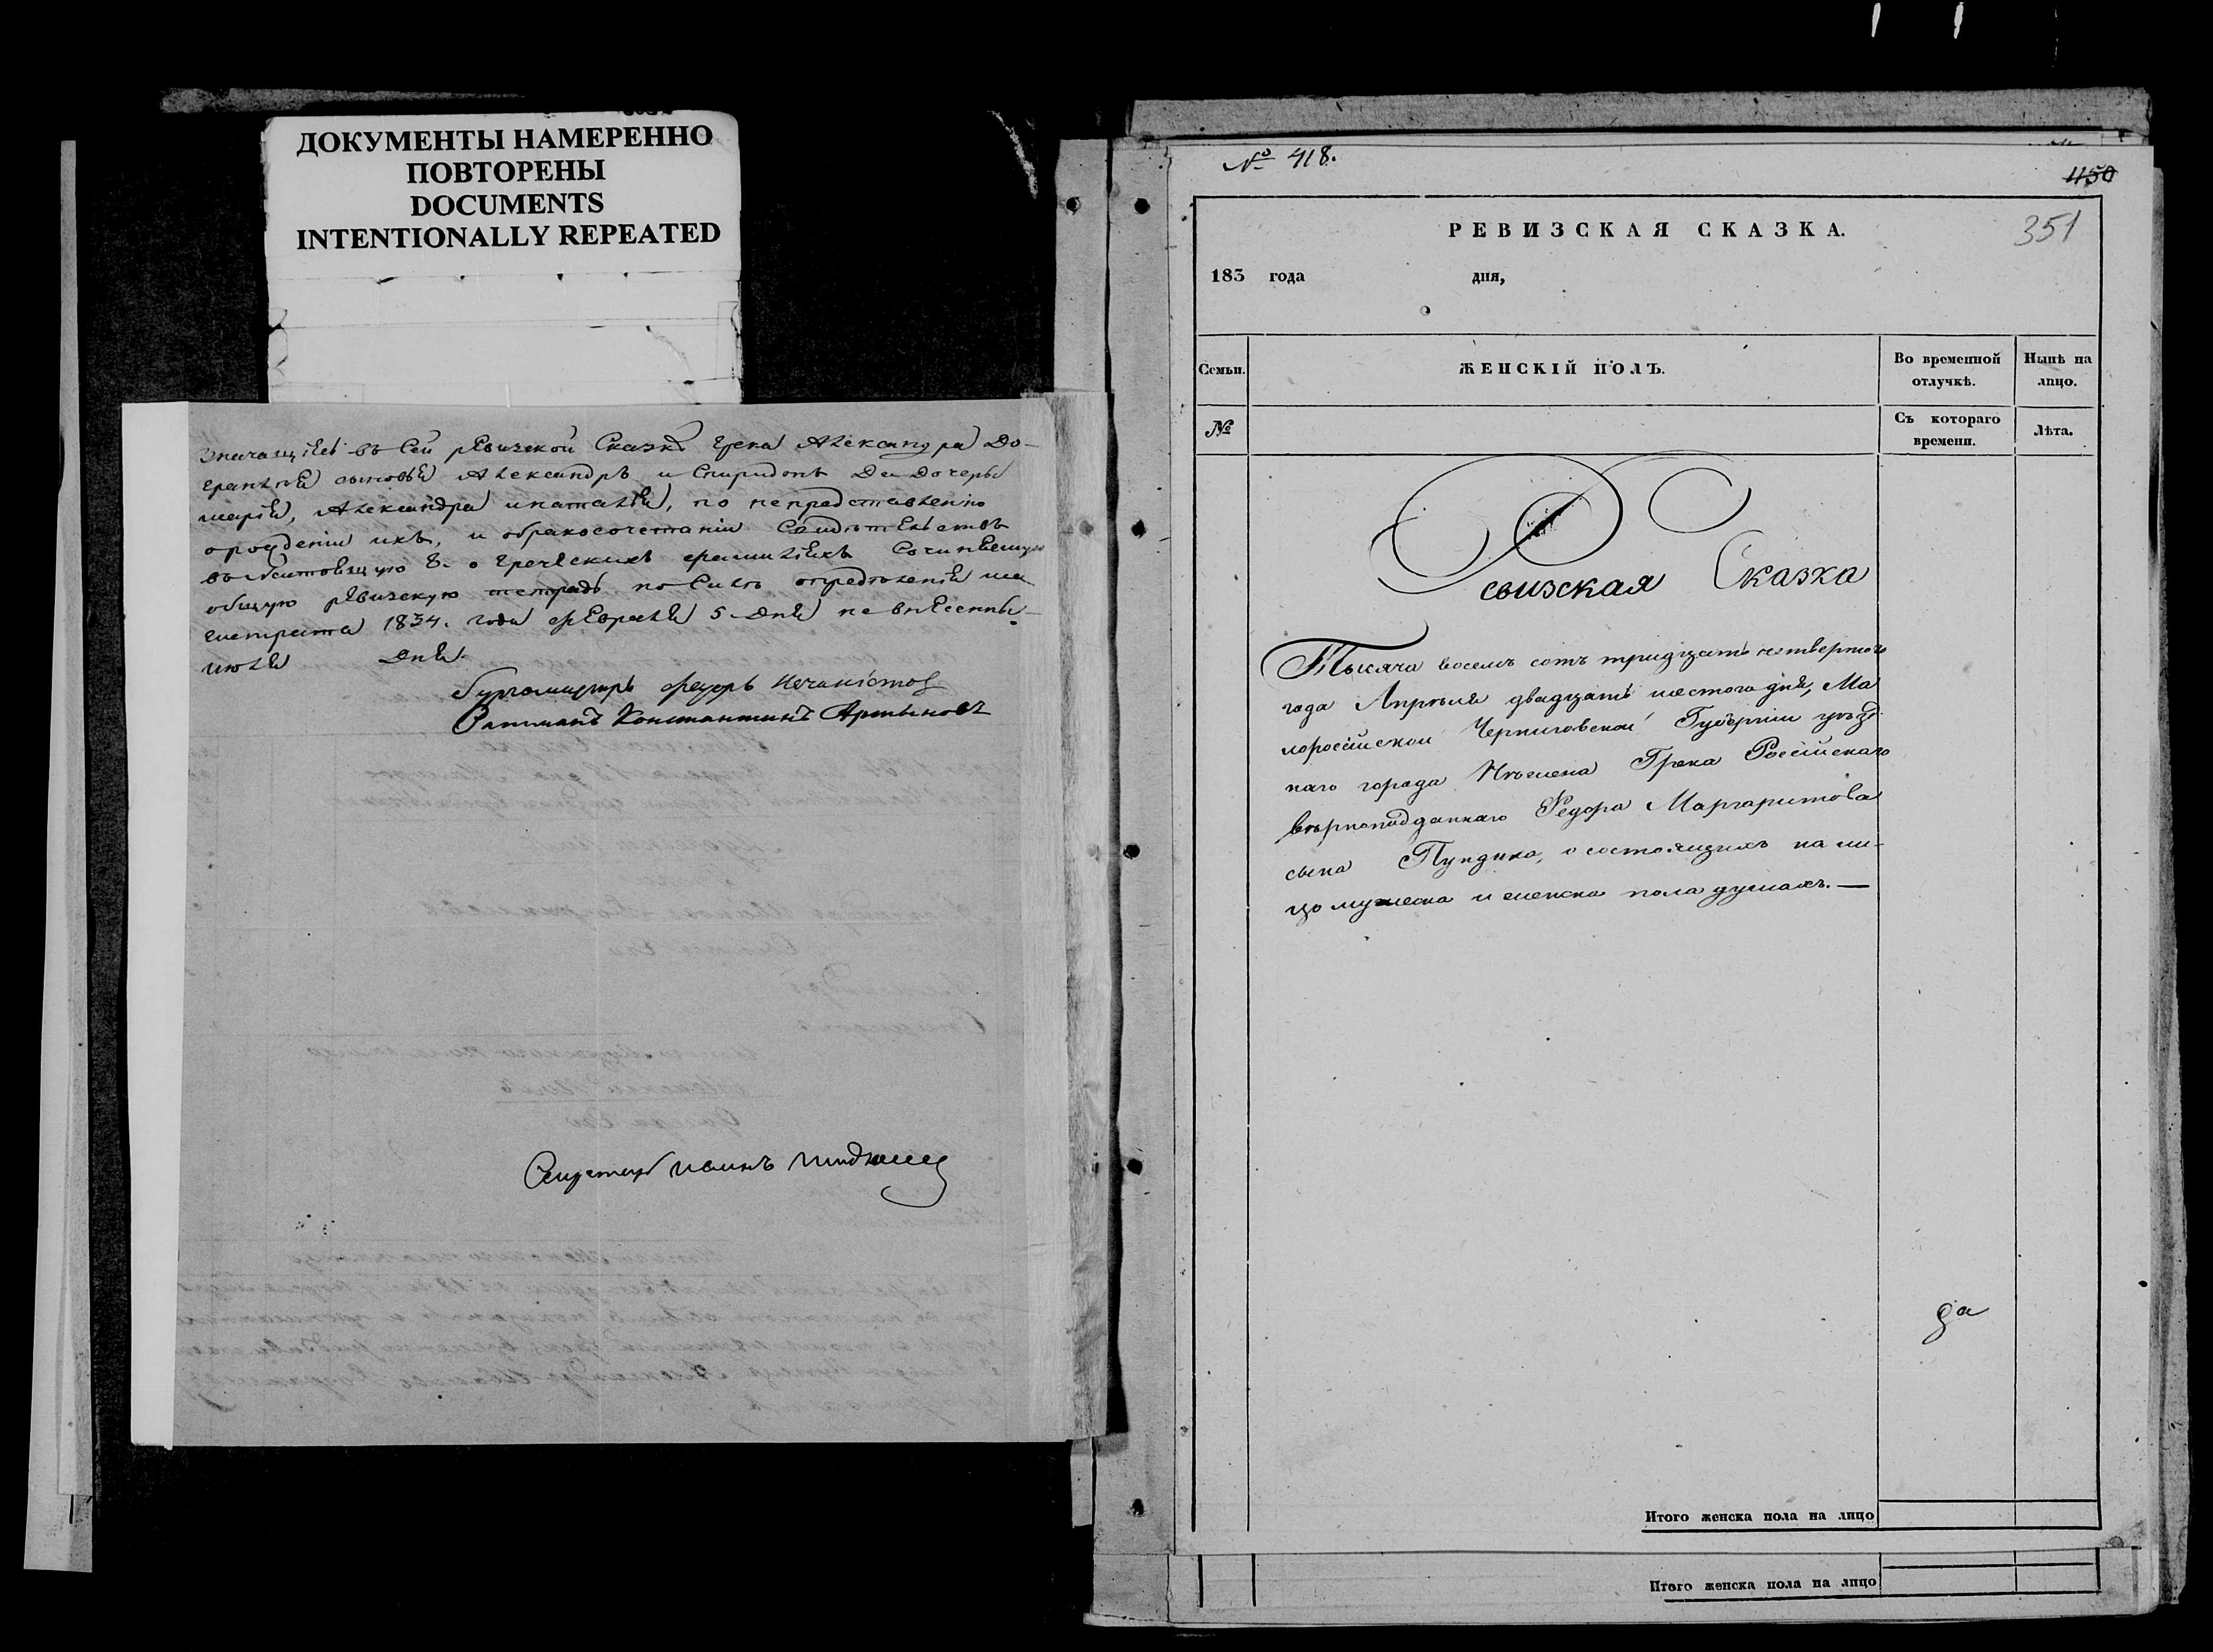 ДОКУМЕНТЫ НАМЕРЕННО
ПОВТОРЕНЫ
DOCUMENTS
INTENTIONALLY REPEATED
въ сей ревизской Сказки грека Александра До-
сыновья Александръ и Спиридонъ Да дочеры
марія, Александра и наталія, по непредставленію
о рожденіи ихъ, и бракосочетаніи Свидѣтельствъ
о греческихъ
общую ревизскую тетрадь по силѣ опредѣленія ма-
гистрата 1834. года февраля 5 дня не внесенны
июля дня.
Бургомистръ федоръ
Ратманъ Константинъ
иванъ
№ 418.
450
351
РЕВИЗСКАЯ СКАЗКА.
183 года дня,
Семьи.
ЖЕНСКІЙ ПОЛЪ.
Во временной отлучкѣ.
Нынѣ на лицо.
№
Съ котораго времени.
Лѣта.
Ревизская Сказка
Тысяча восемь сотъ тридцать четвертого
года Апрѣля двадцать шестого дня, Ма
лоросійской Черниговской Губерніи уѣзд
наго города Нѣжена Грека Російскаго
вѣрноподданнаго Федора Маргаритова
сына Пундика, о состоящихъ на ли-
цо мужеска и женска пола душахъ.—
да
Итого женска пола на лицо
Итого женска пола на лицо